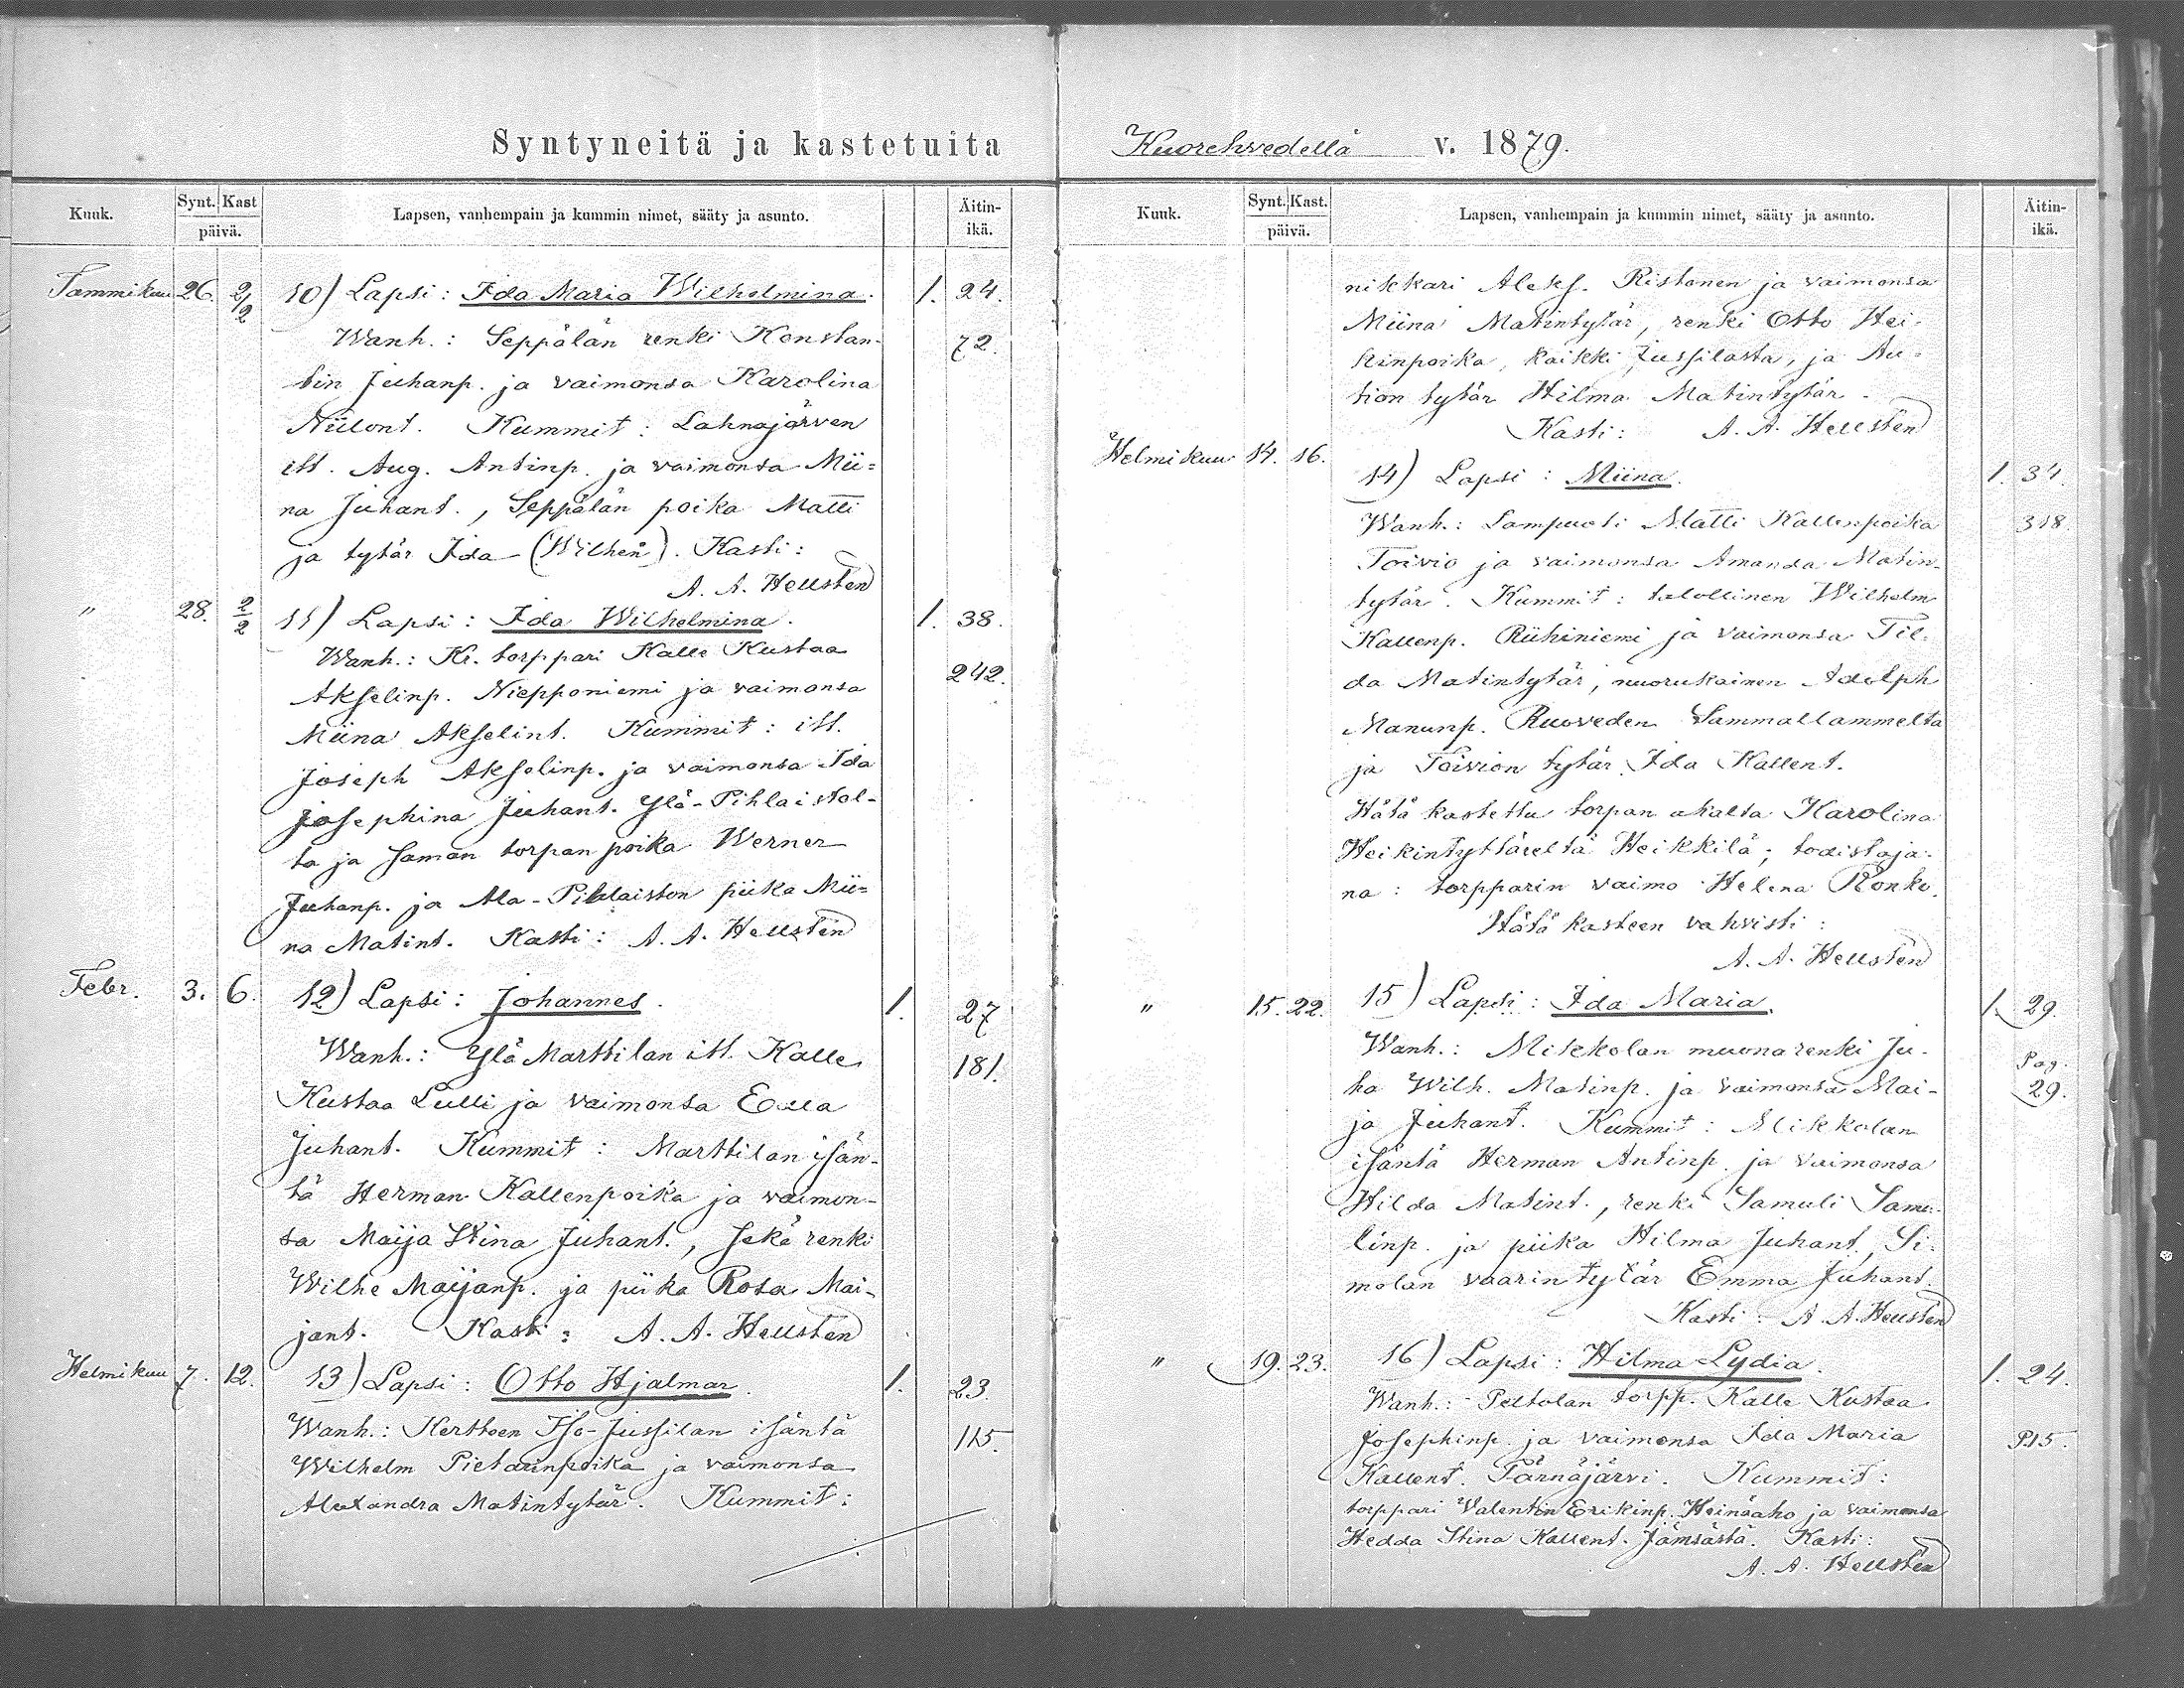 Syntyneitä ja kastetuita
Kuuk. Synt. Kast päivä. Lapsen, vanhempain ja kummin nimet, sääty ja asunto. Äitin-ikä.
Tammikuu 26. 2/2 10) Lapsi: Ida Maria Wilhelmina. 1. 24.
Wanh.: Seppälän renki Konstan- 72.
tin Juhanp. ja vaimonsa Karolina
Niilont. Kummit: Lahnajärven
itl. Aug. Antinp. ja vaimonsa Mii=
na Juhant., Seppälän poika Matti
ja tytär Ida (Wilhen). Kasti:
A. A. Hellsten
" 28. 2/2 11) Lapsi: Ida Wilhelmina. 1. 38.
Wanh.: Kr. torppari Kalle Kustaa 242.
Akselinp. Niepponiemi ja vaimonsa
Miina Akselint. Kummit: itl.
Joseph Akselinp. ja vaimonsa Ida
Josephina Juhant. Ylä-Pihlaistol-
ta ja saman torpan poika Werner
Juhanp. ja Ala-Pihlaiston piika Mii=
na Matint. Kasti: A. A. Hellsten
Febr. 3. 6. 12) Lapsi: Johannes. 1. 27
Wanh.: Ylä Marttilan itl. Kalle 181.
Kustaa Lulli ja vaimonsa Eva
Juhant. Kummit: Marttilan isän-
tä Herman Kallenpoika ja vaimon-
sa Maija Stina Juhant., sekä renki
Wilhe Maijanp. ja piika Rosa Mai-
jant. Kasti: A. A. Hellsten
Helmikuu 7. 12. 13) Lapsi: Otto Hjalmar. 1. 23.
Wanh.: Kertteen Iso-Jussilan isäntä 115.
Wilhelm Pietarinpoika ja vaimonsa
Alexandra Matintytär. Kummit:
Kuorehvedellä v. 1879.
Kuuk. Synt. Kast. päivä. Lapsen, vanhempain ja kummin nimet, sääty ja asunto. Äitin-ikä.
nikkari Aleks. Ristonen ja vaimonsa
Miina Matintytär, renki Otto Hei-
kinpoika, kaikki Jussilasta, ja Au-
tion tytär Hilma Matintytär.
Kasti: A. A. Hellsten
Helmikuu 14. 16. 14) Lapsi: Miina. 1. 34.
Wanh.: Lampuoti Matti Kallenpoika 318.
Toivio ja vaimonsa Amanda Matin-
tytär. Kummit: talollinen Wilhelm
Kallenp. Riihiniemi ja vaimonsa Til-
da Matintytär, nuorukainen Adolph
Manunp. Ruoveden Sammallammelta
ja Toivion tytär Ida Kallent.
Hätä kastettu torpan akalta Karolina
Heikintyttäreltä Heikkilä; todistaja-
na: torpparin vaimo Helena Rönkö.
Hätä kasteen vahvisti:
A. A. Hellsten
" 15. 22. 15) Lapsi: Ida Maria. 1. 29.
Wanh.: Mikkolan muonarenki Ju- Pag.
ha Wilh. Matinp. ja vaimonsa Mai- 29.
ja Juhant. Kummit: Mikkolan
isäntä Herman Antinp. ja vaimonsa
Hilda Matint., renki Samuli Samu-
linp. ja piika Hilma Juhant., Si-
molan vaarin tytär Emma Juhant.
Kasti: A. A. Hellsten
" 19. 23. 16) Lapsi: Hilma Lydia. 1. 24.
Wanh.: Peltolan torpp. Kalle Kustaa
Josephinp. ja vaimonsa Ida Maria P15.
Kallent. Pärnäjärvi. Kummit:
torppari Valentin Erikinp. Heinäaho ja vaimonsa
Hedda Stina Kallent. Jämsästä. Kasti:
A. A. Hellsten